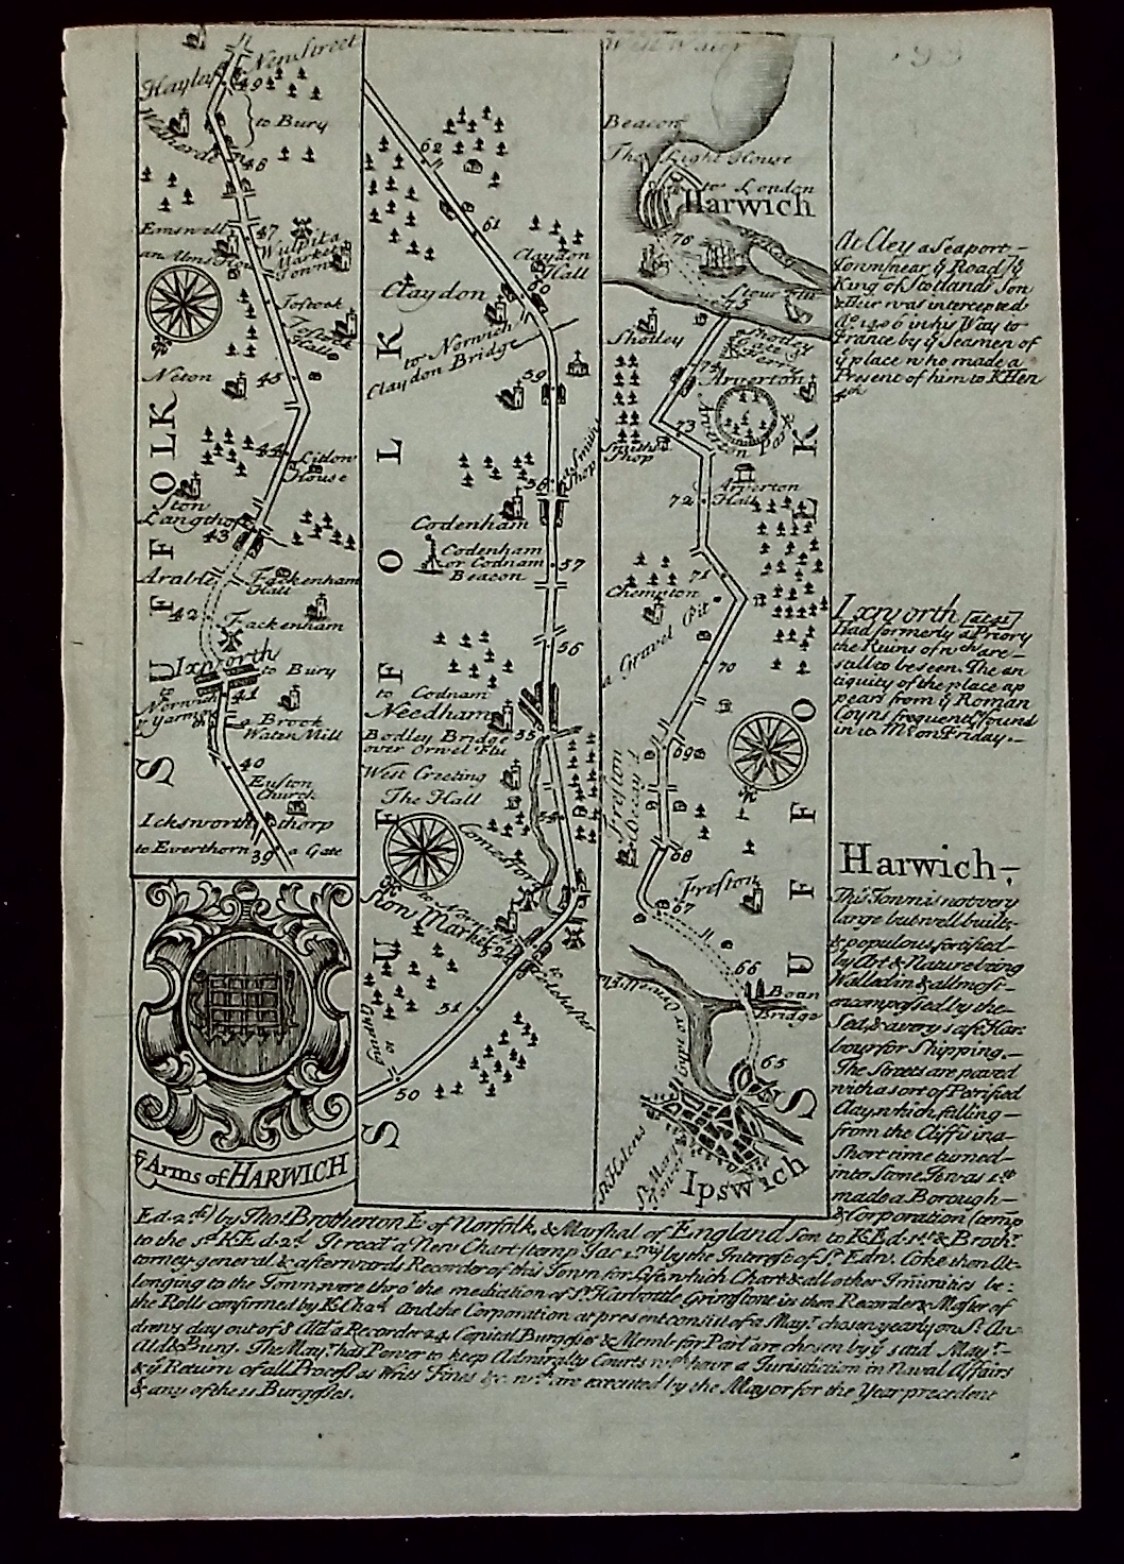 New Street
Hayley
49
to Bury
48
Emswell
47
Wulpit a
Market
Town
an Alms House
Tostock
Tostock
Hall
Neton
45
44
Litlow
House
Ston
Langthof
43
Arable
Fackenham
Hall
42
Fackenham
Ixworth
to Bury
to
Norwich
& Yarmo
41
a Brook
Water Mill
40
Euston
Church
Icksworth thorp
to Everthorn
39
a Gate
SUFFOLK
ye Arms of HARWICH
62
61
Claydon
Hall
60
Claydon
to Norwich
Claydon Bridge
59
a Smiths
Shop
58
Codenham
Codenham
or Codnam
Beacon
57
56
to Codnam
Needham
55
Bodley Bridge
over Orwel Flu
West Creeting
The Hall
54
Stow Market
to Norwich
52
to Colchester
51
50
SUFFOLK
West Water
Beacon
The Light House
to London
Harwich
76
Stour Flu
75
Shotley
Shotley
Gate &
Ferry
74
Arverton
Arverton Park
73
Smiths
Shop
Arverton
Hall
72
71
Chempton
a Gravel Pit
70
69
Freston
68
Freston
67
66
Boan
Bridge
Gype or Orwell Flu
65
St. Helens
St. Mary
Tower
Ipswich
SUFFOLK
At Cley a Seaport
Town near ye Road ye
King of Scotlands Son
& Heir was intercepted
Ao. 1406 in his Way to
France by ye Seamen of
ye place who made a
Present of him to K Hen
4th
Ixworth [at 41]
Had formerly a Priory
the Ruins of wch are
still to be seen. The an
tiquity of the place ap
pears from ye Roman
Coyns frequently found
in it. Mt. on Friday.
Harwich
This Town is not very
large but well built
& populous fortified
by Art & Nature being
Walled in & allmost
encompassed by the
Sea, & a very safe Har
bour for Shipping.
The Streets are paved
with a sort of Petrified
Clay, which falling
from the Cliff is in a
Short time turned
into Stone. It was 1st
made a Borough
& Corporation (temp
Ed. 2di) by Thos. Brotherton E. of Norfolk, & Marshal of England Son to K Ed. 1st. & Brothr.
to the sd. K Ed. 2d. It recd. a New Chart. (temp. Jac. 1mi) by the Interest of Sr. Edw. Coke then At-
torney general & afterwards Recorder of this Town for Life, which Chart. & all other Immunities be:
longing to the Town were thro' the mediation of Sr. Harbottle Grimstone its then Recorder & Master of
the Rolls confirmed by K Cha. 2d. And the Corporation at present consist of a Mayr. chosen yearly on St. An
drews day out of 8 Ald. a Recorder 24 Capital Burgesses & Memb. for Parl. are chosen by ye said Mayr.
Ald. & Burg. The Mayr. has Power to keep Admiralty Courts wch. have a Jurisdiction in Naval Affairs
& ye Return of all Process as Writs Fines &c. wch. are executed by the Mayor for the Year precedent
& any of the 11 Burgesses.